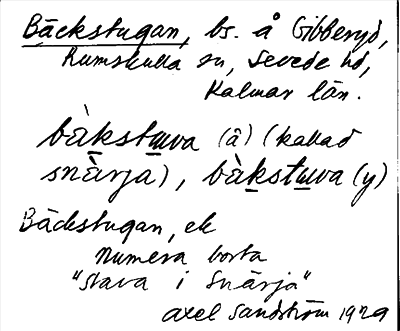 Bäckstugan, bs. å Gibberyd,
Rumskulla sn, Sevede hd,
Kalmar län.
bàkstuva (å) (kallad
snàrja), bàkstuva (y)
Bäckstugan, ek
numera borta
"stava i Snärja"
Axel Sandström 1929